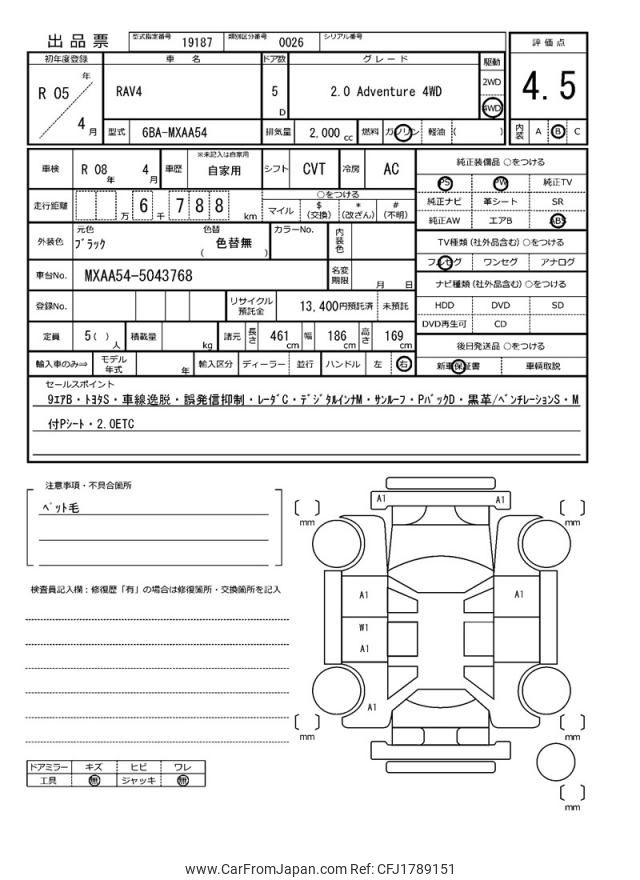 出品票 型式指定番号 19187 類別区分番号 0026 シリアル番号
初年度登録 車名 ドア数 グレード 駆動 評価点
R 05 年 4 月 RAV4 5 D 2.0 Adventure 4WD 2WD 4WD 4.5
型式 6BA-MXAA54 排気量 2,000 cc 燃料 ガソリン 軽油 ( ) 内装 A B C
車検 R 08 年 4 月 車歴 ※未記入は自家用 自家用 シフト CVT 冷房 AC 純正装備品 ○をつける
PS PW 純正TV
走行距離 万 6 千 7 8 8 km ○をつける マイル $ (交換) * (改ざん) # (不明) 純正ナビ 革シート SR
純正AW エアB ABS
外装色 元色 ブラック 色替 ( 色替無 ) カラーNo. 内装色 TV種類 (社外品含む) ○をつける
フルセグ ワンセグ アナログ
車台No. MXAA54-5043768 名変期限 月 日 ナビ種類 (社外品含む) ○をつける
登録No. リサイクル預託金 13,400円預託済 未預託 HDD DVD SD
DVD再生可 CD
定員 5( ) 人 積載量 kg 諸元 長さ 461 cm 幅 186 cm 高さ 169 cm 後日発送品 ○をつける
輸入車のみ⇒ モデル年式 年 輸入区分 ディーラー 並行 ハンドル 左 右 新車保証書 車輌取説
セールスポイント
9ｴｱB・ﾄﾖﾀS・車線逸脱・誤発信抑制・ﾚｰﾀﾞC・ﾃﾞｼﾞﾀﾙｲﾝﾅM・ｻﾝﾙｰﾌ・PﾊﾞｯｸD・黒革/ﾍﾞﾝﾁﾚｰｼｮﾝS・M
付Pｼｰﾄ・2.0ETC
注意事項・不具合箇所
ﾍﾟｯﾄ毛
検査員記入欄：修復歴「有」の場合は修復箇所・交換箇所を記入
ドアミラー キズ ヒビ ワレ
工具 無 ジャッキ 無
A1 A1
mm mm
A1 A1
W1
A1
A1
mm mm
mm
www.CarFromJapan.com Ref: CFJ1789151